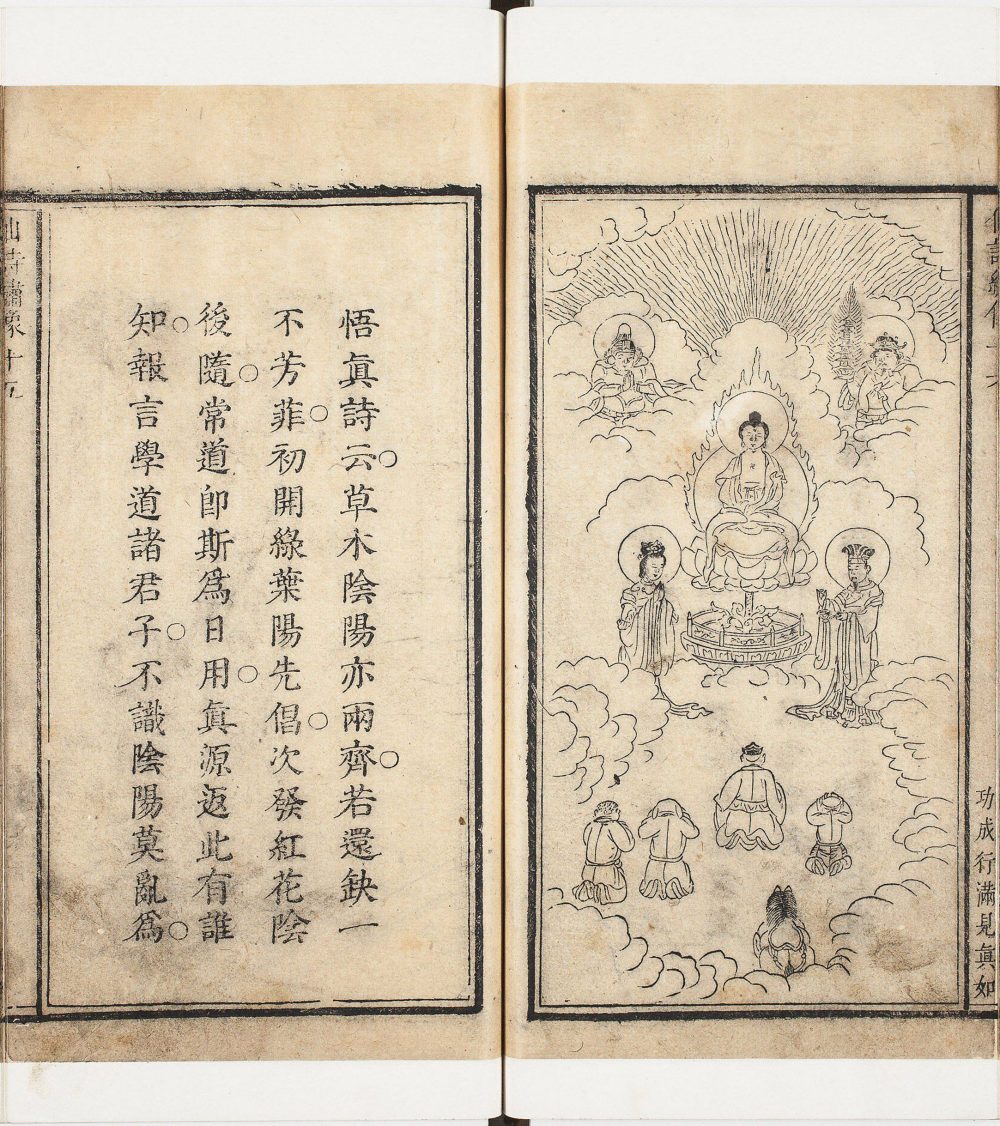 功成行滿見眞如
悟眞詩云○草木陰陽亦兩齊○若還缺一
不芳菲○初開綠葉陽先倡○次發紅花陰
後隨○常道卽斯爲日用○眞源返此有誰
知○報言學道諸君子○不識陰陽莫亂爲○
仙詩繡像十五